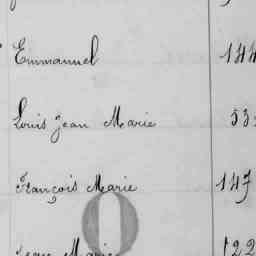 Emmanuel 144
Louis Jean Marie 53
François Marie 147
Jean Marie 122